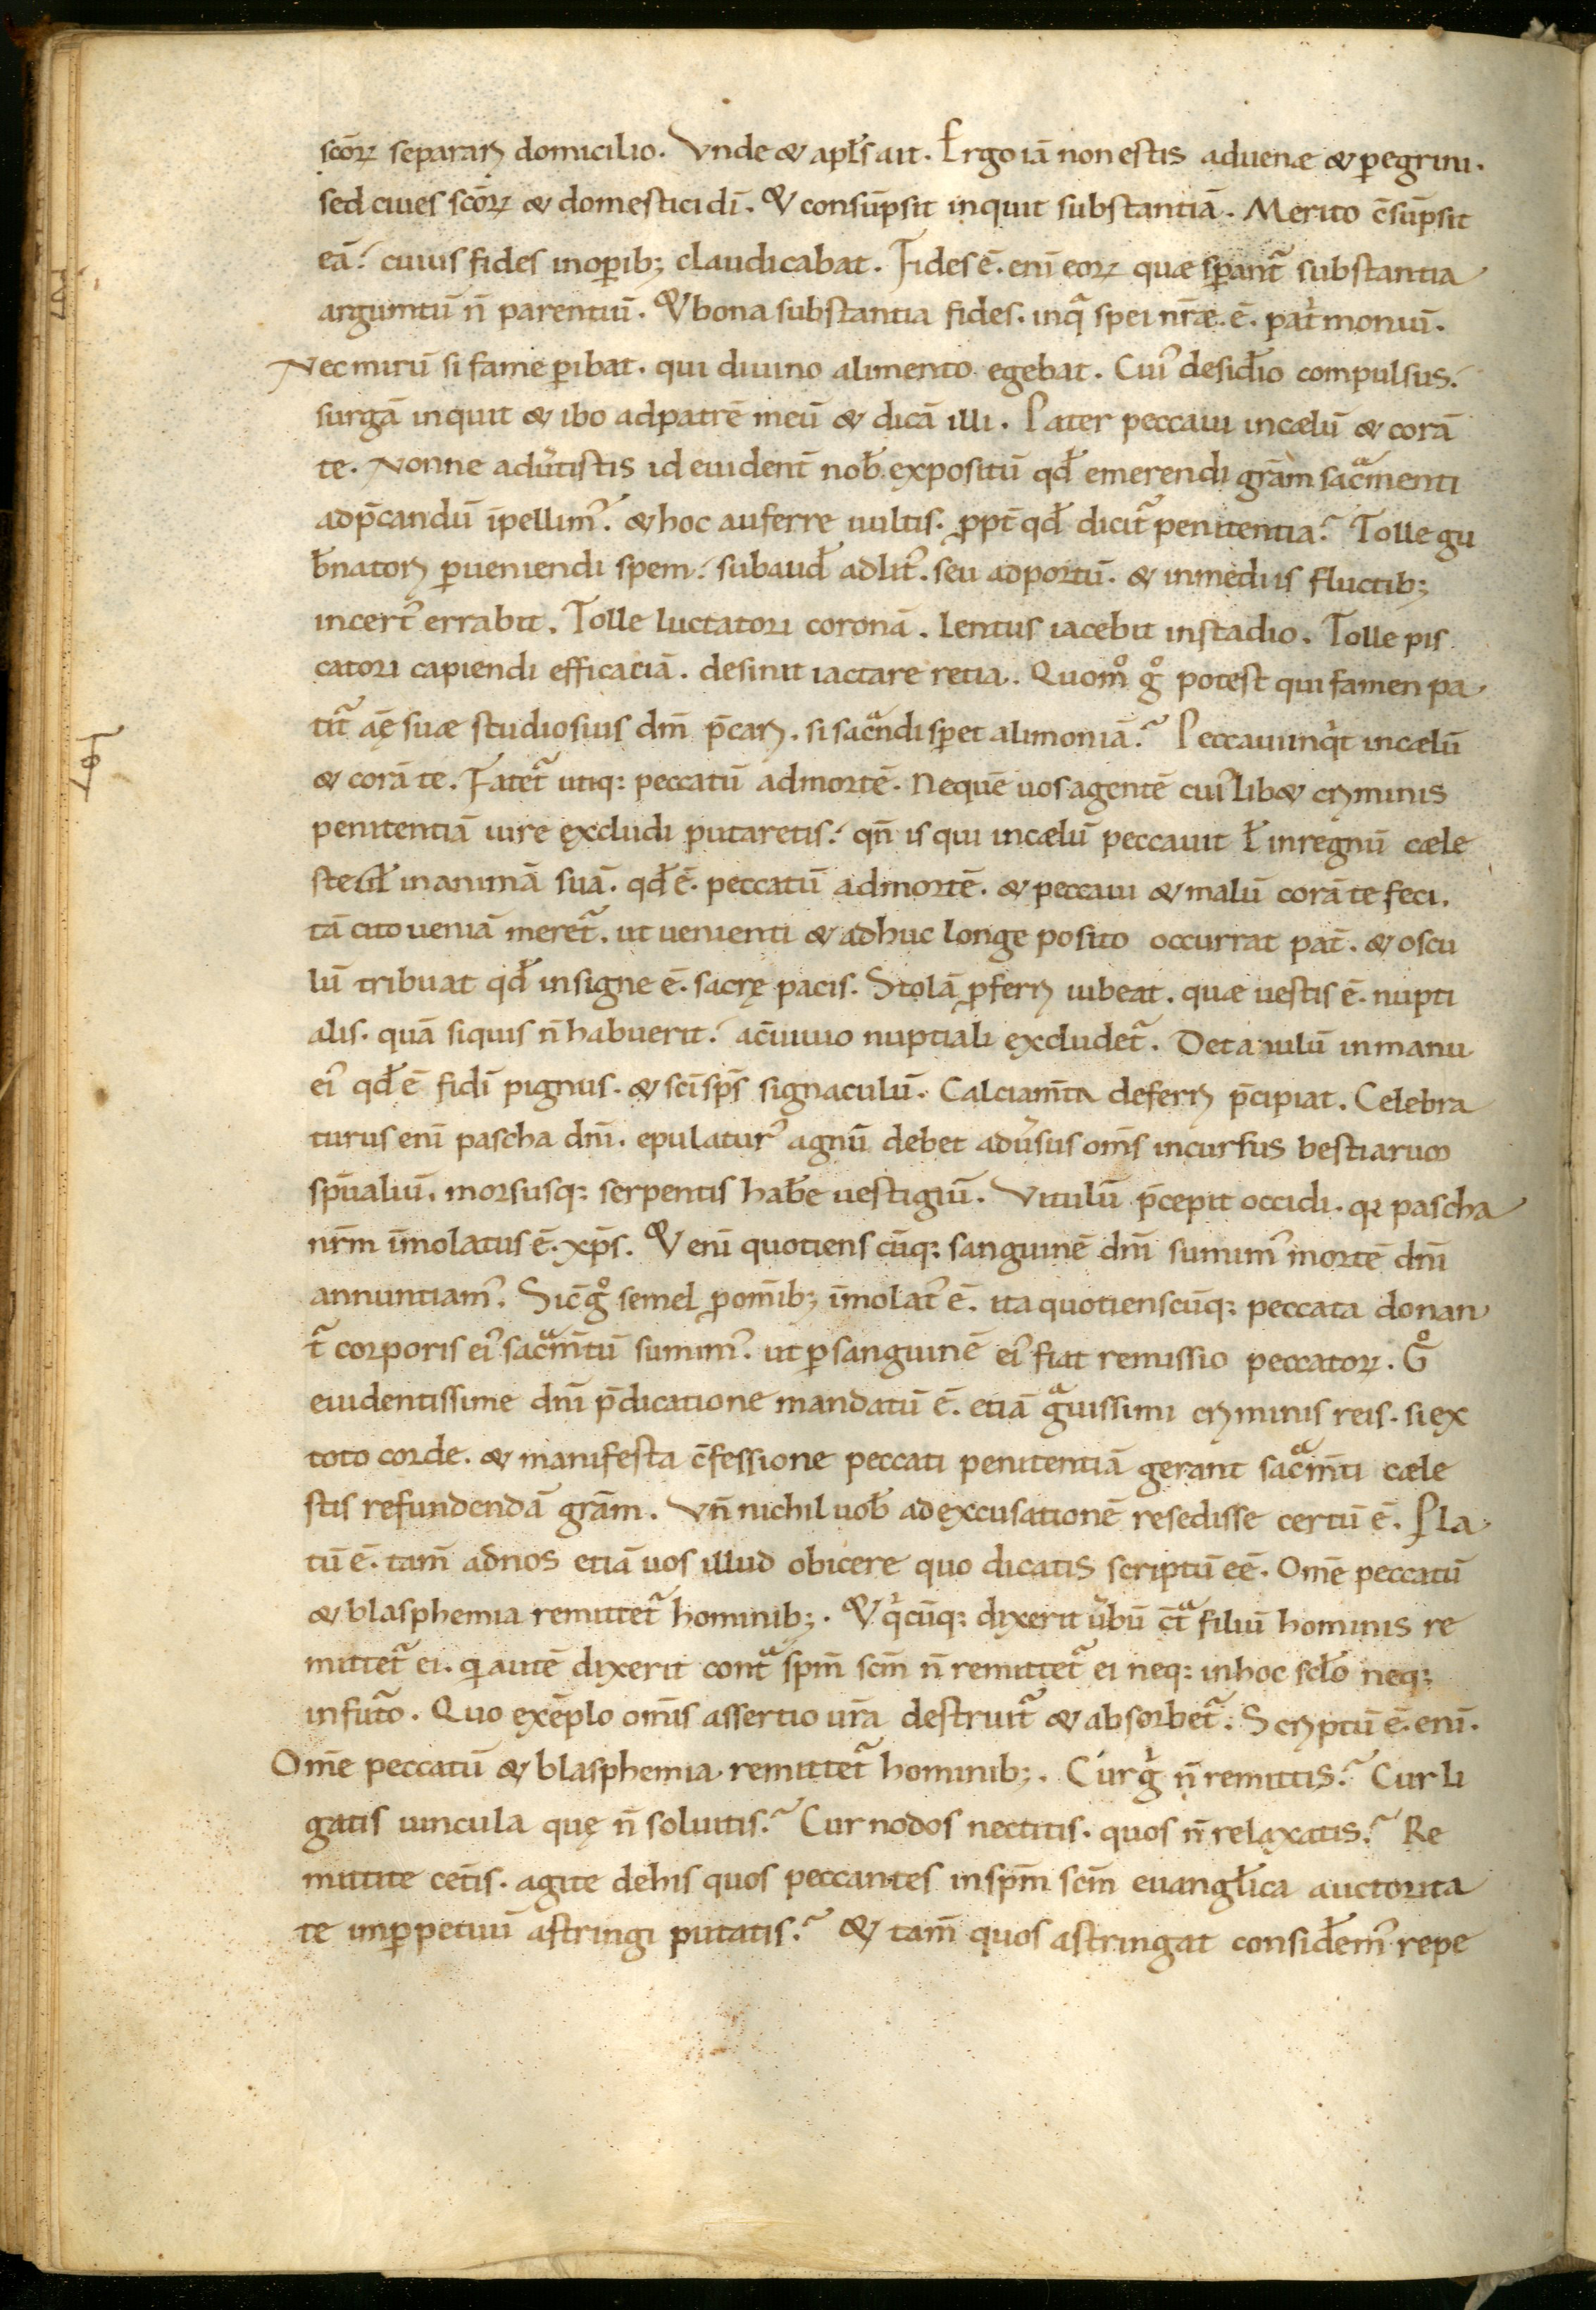 scōꝝ separaꝶ domicilio. Vnde & apłs ait. Ergo iā non estis aduenæ & ꝑegrini.
sed ciues scōꝝ & domestici dī. Et consūpsit inquit substantiā. Merito c̄sūpsit
eā. cuius fides in oꝑib; claudicabat. Fides ē. enī eoꝝ quæ sꝑant᷑ substantia
argumtū n̄ parentiū. Et bona substantia fides. in qͣ spei nr̄æ. ē. patⁱmoniū.
Nec mirū si fame ꝑibat. qui diuino alimento egebat. Cui᷒ desiđio compulsus.
surgā inquit & ibo ad patrē meū & dicā illi. Pater peccaui in cælū & corā
te. Nonne adu͛tistis id euident̄ nob̄ expositū qđ emerendi grām sac̄ͣmenti
ad p̄candū īpellim᷒. & hoc auferre uultis. ꝓpt̄ qđ dicit᷑ penitentia? Tolle gu
b̄natoꝶ ꝑueniendi spem. subauđ ad lit᷒. seu ad portū. & in mediis fluctib;
incert᷒ errabit. Tolle luctatori coronā. lentus iacebit in stadio. Tolle pis
catori capiendi efficaciā. desinit iactare retia. Quomͦ gͦ potest qui famen pa
tit᷑ āę suæ studiosius dn̄m p̄caꝶ. si sac̄ͣndi sꝑet alimoniā? Peccaui inqⁱt in cælū
& corā te. Fatet᷑ utiq; peccatū ad mortē. Ne quē uos agentē cui᷒lib& cꝶminis
penitentiā iure excludi putaretis. qn̄ is qui in cælū peccauit ł in regnū cæle
ste uł in animā suā. qđ ē. peccatū ad mortē. & peccaui & malū corā te feci.
tā cito ueniā meret᷑. ut uenienti & adhuc longe posito occurrat pat̄. & oscu
lū tribuat qđ insigne ē. sacrę pacis. Stolā ꝓferꝶ iubeat. quæ uestis ē. nupti
alis. quā si quis n̄ habuerit. a c̄uiuio nuptiali excludet᷑. Det anulū in manu
ei᷒ qđ ē fidī pignus. & sc̄i sp̄s signaculū. Calciam̄ta deferꝶ p̄cipiat. Celebra
turus enī pascha dn̄i. epulatur᷒ agnū debet adu͛sus om̄s incursus bestiarum
sp̄ualiū. morsusq; serpentis hab̄e uestigiū. Vitulū p̄cepit occidi. qꝛ pascha
nr̄m īmolatus ē. xp̄s. Et enī quotiens cūq; sanguinē dn̄i sumim᷒ mortē dn̄i
annuntiam᷒. Sic̄ gͦ semel ꝓ om̄ib; īmolat᷒ ē. ita quotienscūq; peccata donan
t᷑ corporis ei᷒ sac̄ͣm̄tū sumim᷒. ut ꝑ sanguinē ei᷒ fiat remissio peccatoꝝ. Gͦ
euidentissime dn̄i p̄dicatione mandatū ē. etiā gͣuissimi cꝶminis reis. si ex
toto corde. & manifesta c̄fessione peccati penitentiā gerant sac̄ͣm̄ti cæle
stis refundendā grām. Vn̄ nichil uob̄ ad excusationē resedisse certū ē. Pla
tū ē. tam̄ ad nos etiā uos illud obicere quo dicatis scriptū eē. Om̄e peccatū
& blasphemia remittet᷑ hominib;. Et qⁱcūq; dixerit u͛bū c̄tͣ filiū hominis re
mittet᷑ ei. qⁱ autē dixerit contͣ sp̄m sc̄m n̄ remittet᷑ ei neq; in hoc scło neq;
in futͦ. Quo exēplo om̄is assertio ur̄a destruit᷑ & absorbet᷑. Scꝶptū ē. enī.
Om̄e peccatū & blasphemia remittet᷑ hominib;. Cur gⁱ n̄ remittis? Cur li
gatis uincula quę n̄ soluitis? Cur nodos nectitis. quos n̄ relaxatis? Re
mittite cet̄is. agite de his quos peccantes in sp̄m sc̄m euangłica auctorita
te in ꝑpetuū astringi putatis? & tam̄ quos astringat consiđem᷒ repe